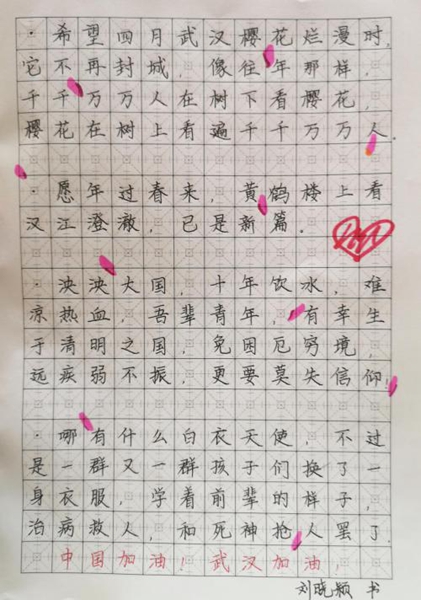 ·希望四月武汉樱花烂漫时，
它不再封城，像往年那样，
千千万万人在树下看樱花，
樱花在树上看遍千千万万人．
·愿年过春来，黄鹤楼上看
汉江澄澈，已是新篇．
·泱泱大国，十年饮冰，难
凉热血，吾辈青年，有幸生
于清明之国，免困厄穷境，
远疾弱不振，更要莫失信仰！
·哪有什么白衣天使，不过
是一群又一群孩子们换了一
身衣服，学着前辈的样子，
治病救人，和死神抢人罢了．
中国加油！武汉加油！
刘晓颖 书